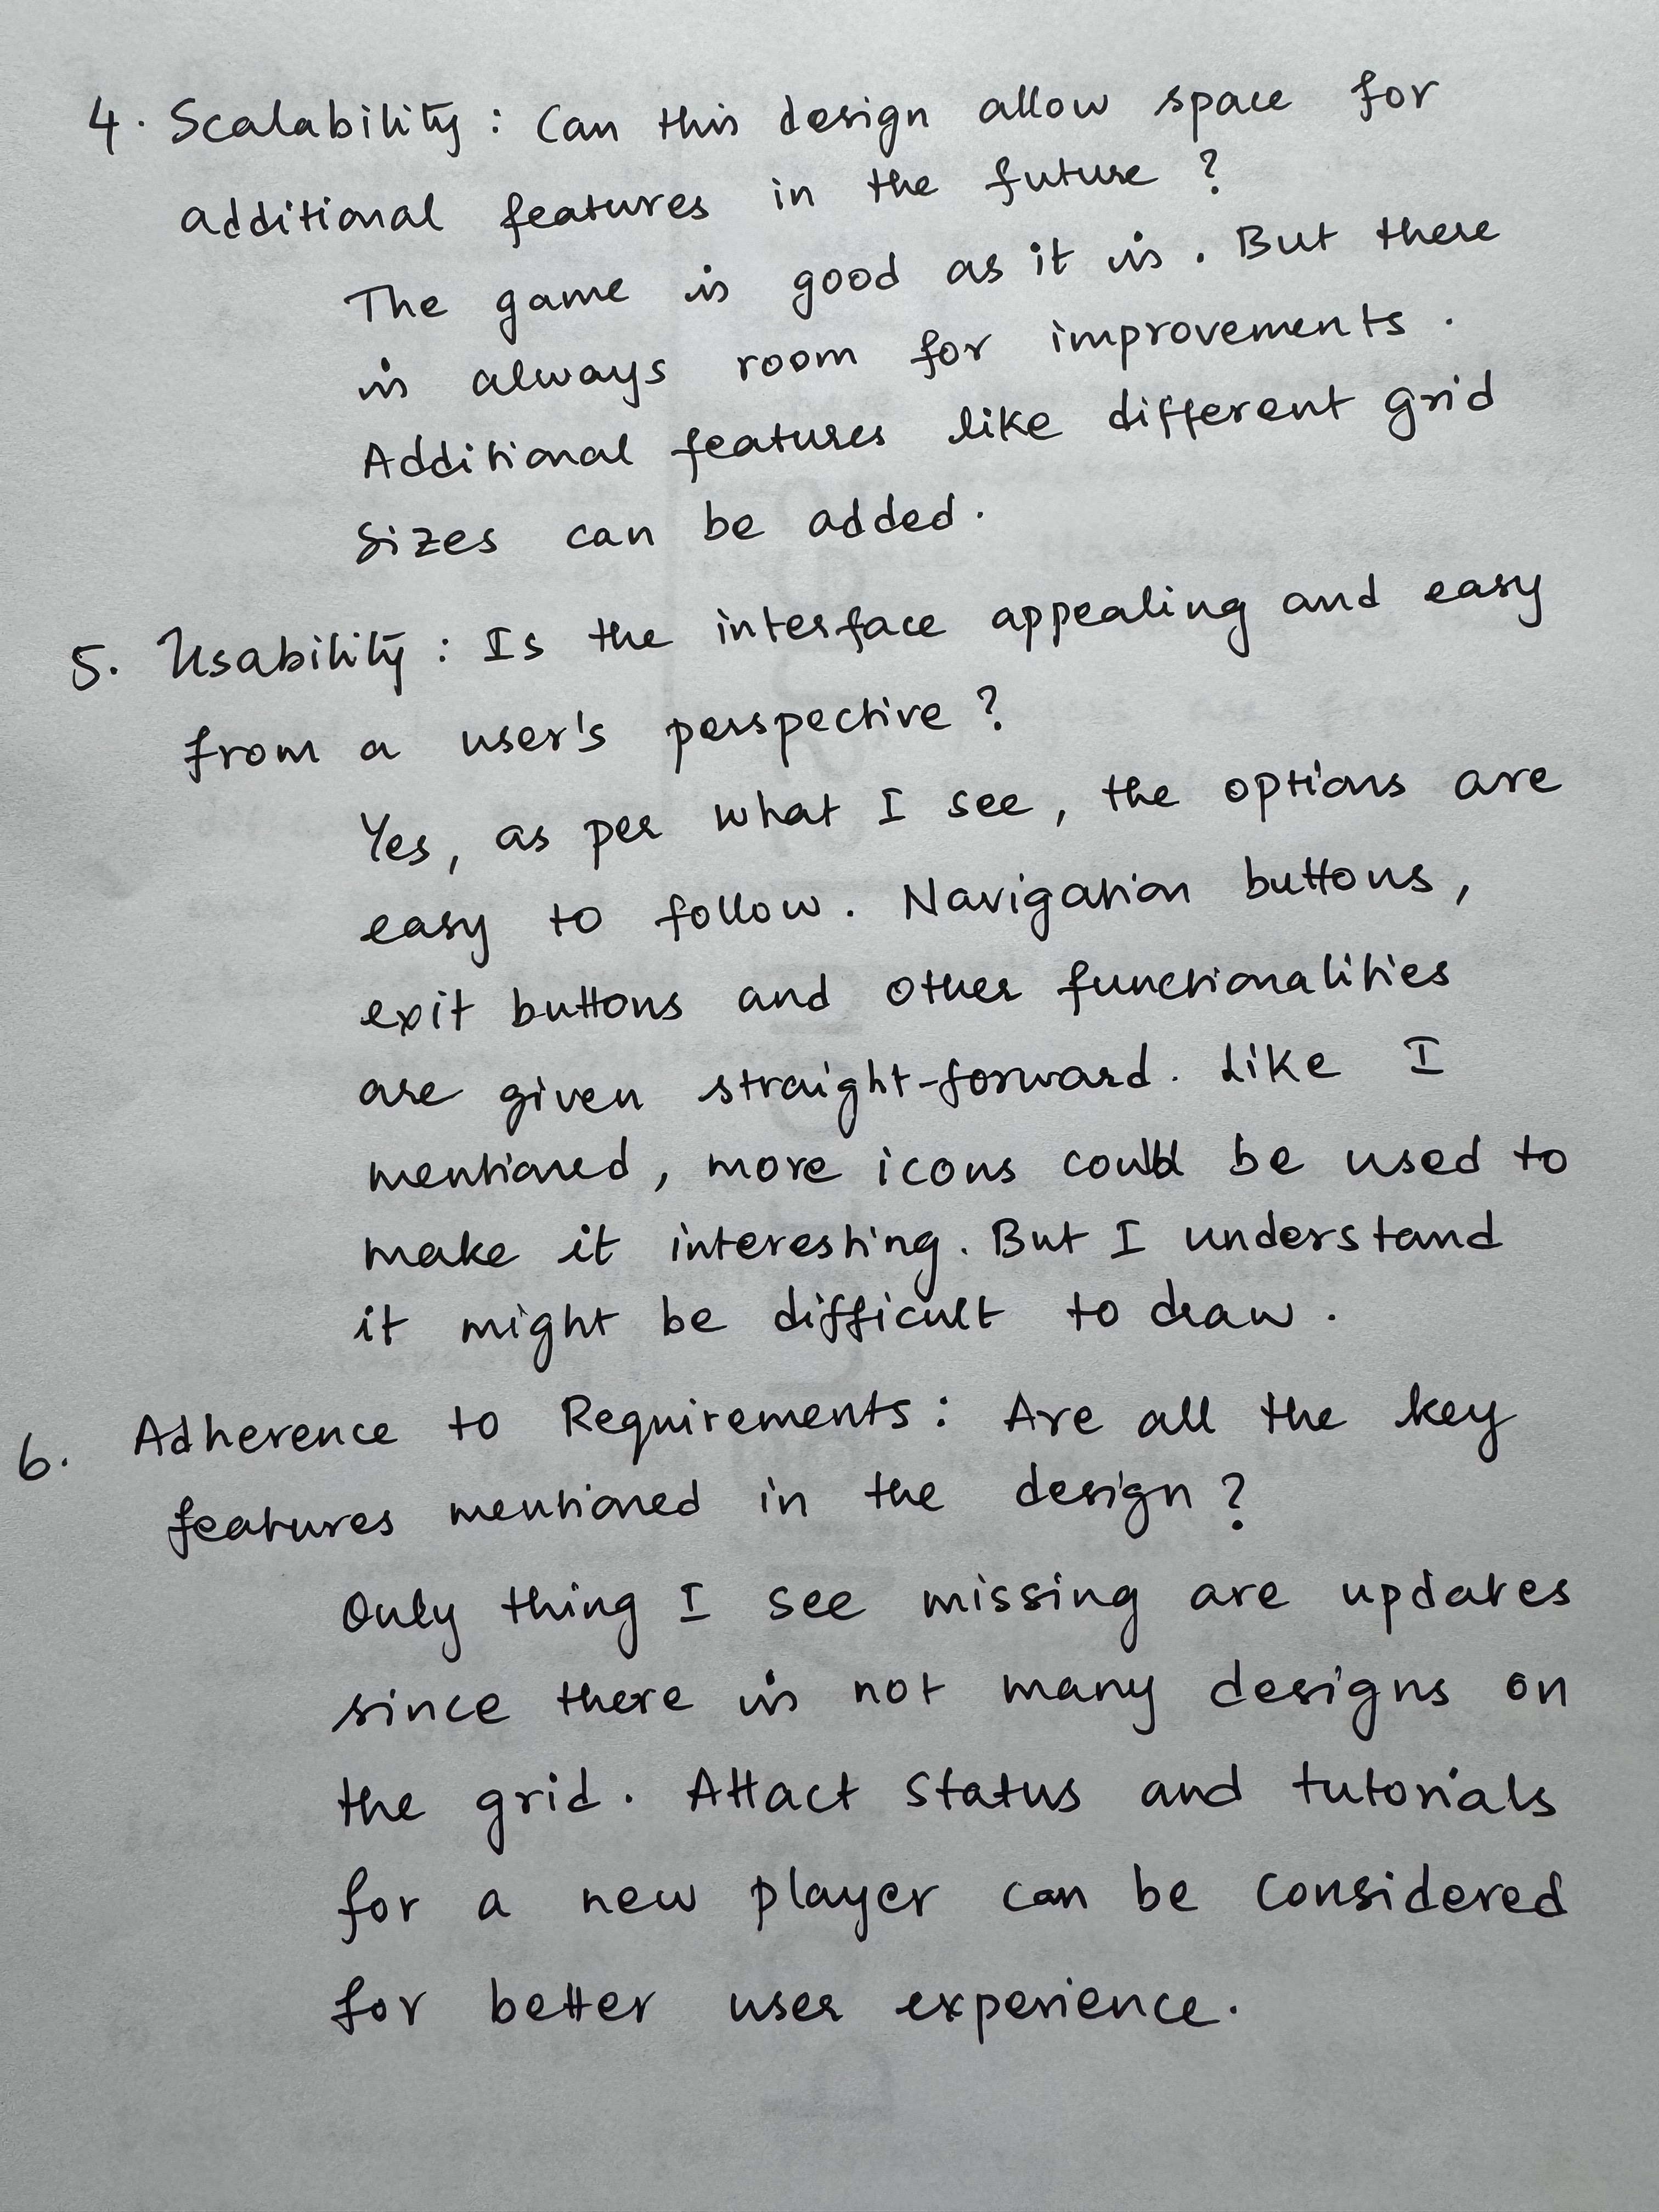 4. Scalability : Can this design allow space for
additional features in the future ?
The game is good as it is. But there
is always room for improvements.
Additional features like different grid
sizes can be added.
5. Usability : Is the interface appealing and easy
from a user's perspective ?
Yes, as per what I see, the options are
easy to follow. Navigation buttons,
exit buttons and other functionalities
are given straight-forward. Like I
mentioned, more icons could be used to
make it interesting. But I understand
it might be difficult to draw.
6. Adherence to Requirements : Are all the key
features mentioned in the design ?
Only thing I see missing are updates
since there is not many designs on
the grid. Attact status and tutorials
for a new player can be considered
for better user experience.